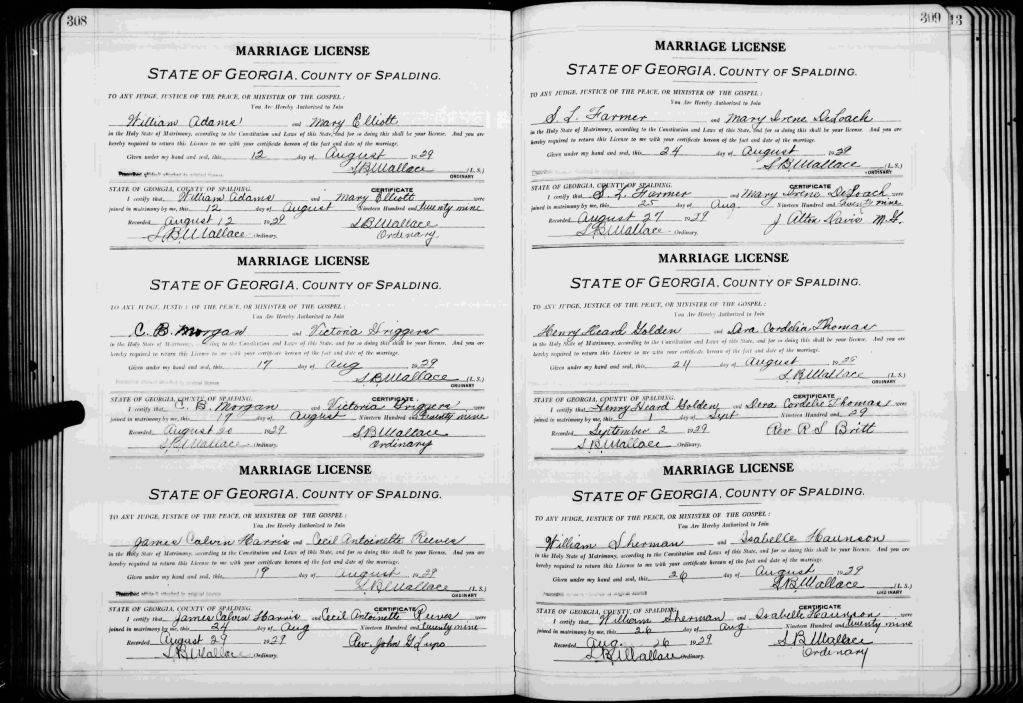 308
MARRIAGE LICENSE
STATE OF GEORGIA, COUNTY OF SPALDING.
TO ANY JUDGE, JUSTICE OF THE PEACE, OR MINISTER OF THE GOSPEL:
You Are Hereby Authorized to Join
William Adams and Mary Elliott
in the Holy State of Matrimony, according to the Constitution and Laws of this State, and for so doing this shall be your license. And you are
hereby required to return this License to me with your certificate hereon of the fact and date of the marriage.
Given under my hand and seal, this 12 day of August 1929
S.B. Wallace (L. S.)
Prescribed affidavit attached to original license ORDINARY
STATE OF GEORGIA, COUNTY OF SPALDING. CERTIFICATE
I certify that William Adams and Mary Elliott were
joined in matrimony by me, this 12 day of August Nineteen Hundred and twenty nine
Recorded August 12 1929 S.B. Wallace
S.B. Wallace Ordinary. Ordinary
MARRIAGE LICENSE
STATE OF GEORGIA, COUNTY OF SPALDING.
TO ANY JUDGE, JUSTICE OF THE PEACE, OR MINISTER OF THE GOSPEL:
You Are Hereby Authorized to Join
C. B. Morgan and Victoria Driggers
in the Holy State of Matrimony, according to the Constitution and Laws of this State, and for so doing this shall be your license. And you are
hereby required to return this License to me with your certificate hereon of the fact and date of the marriage.
Given under my hand and seal, this 17 day of Aug 1929
S.B. Wallace (L. S.)
Prescribed affidavit attached to original license ORDINARY
STATE OF GEORGIA, COUNTY OF SPALDING. CERTIFICATE
I certify that C. B. Morgan and Victoria Driggers were
joined in matrimony by me, this 17 day of August Nineteen Hundred and twenty nine
Recorded August 20 1929 S.B. Wallace
S.B. Wallace Ordinary. Ordinary
MARRIAGE LICENSE
STATE OF GEORGIA, COUNTY OF SPALDING.
TO ANY JUDGE, JUSTICE OF THE PEACE, OR MINISTER OF THE GOSPEL:
You Are Hereby Authorized to Join
James Calvin Harris and Cecil Antoinette Reeves
in the Holy State of Matrimony, according to the Constitution and Laws of this State, and for so doing this shall be your license. And you are
hereby required to return this License to me with your certificate hereon of the fact and date of the marriage.
Given under my hand and seal, this 19 day of August 1929
S.B. Wallace (L. S.)
Prescribed affidavit attached to original license ORDINARY
STATE OF GEORGIA, COUNTY OF SPALDING. CERTIFICATE
I certify that James Calvin Harris and Cecil Antoinette Reeves were
joined in matrimony by me, this 24 day of Aug Nineteen Hundred and twenty nine
Recorded August 29 1929 Rev. John G.
S.B. Wallace Ordinary.
309 13
MARRIAGE LICENSE
STATE OF GEORGIA, COUNTY OF SPALDING.
TO ANY JUDGE, JUSTICE OF THE PEACE, OR MINISTER OF THE GOSPEL:
You Are Hereby Authorized to Join
S. L. Farmer and Mary Irene DeLoach
in the Holy State of Matrimony, according to the Constitution and Laws of this State, and for so doing this shall be your license. And you are
hereby required to return this License to me with your certificate hereon of the fact and date of the marriage.
Given under my hand and seal, this 24 day of August 1929
S.B. Wallace (L. S.)
ORDINARY
STATE OF GEORGIA, COUNTY OF SPALDING. CERTIFICATE
I certify that S. L. Farmer and Mary Irene DeLoach were
joined in matrimony by me, this 25 day of Aug. Nineteen Hundred and twenty nine
Recorded August 27 1929 J Davis M.G.
S.B. Wallace Ordinary.
MARRIAGE LICENSE
STATE OF GEORGIA, COUNTY OF SPALDING.
TO ANY JUDGE, JUSTICE OF THE PEACE, OR MINISTER OF THE GOSPEL:
You Are Hereby Authorized to Join
Henry Heard Golden and Dera Cordelia Thomas
in the Holy State of Matrimony, according to the Constitution and Laws of this State, and for so doing this shall be your license. And you are
hereby required to return this License to me with your certificate hereon of the fact and date of the marriage.
Given under my hand and seal, this 24 day of August
S.B. Wallace (L. S.)
ORDINARY
STATE OF GEORGIA, COUNTY OF SPALDING. CERTIFICATE
I certify that Henry Heard Golden and Dera Cordelia Thomas were
joined in matrimony by me, this 1 day of Sept Nineteen Hundred and 29
Recorded September 2 1929 Rev R S Britt
S.B. Wallace Ordinary.
MARRIAGE LICENSE
STATE OF GEORGIA, COUNTY OF SPALDING.
TO ANY JUDGE, JUSTICE OF THE PEACE, OR MINISTER OF THE GOSPEL:
You Are Hereby Authorized to Join
William Sherman and Isabelle Haunson
in the Holy State of Matrimony, according to the Constitution and Laws of this State, and for so doing this shall be your license. And you are
hereby required to return this License to me with your certificate hereon of the fact and date of the marriage.
Given under my hand and seal, this 26 day of August 1929
S.B. Wallace (L. S.)
Prescribed affidavit attached to original license ORDINARY
STATE OF GEORGIA, COUNTY OF SPALDING. CERTIFICATE
I certify that William Sherman and Isabelle Haunson were
joined in matrimony by me, this 26 day of Aug Nineteen Hundred and twenty nine
Recorded Aug. 26 1929 S.B. Wallace
S.B. Wallace Ordinary. Ordinary